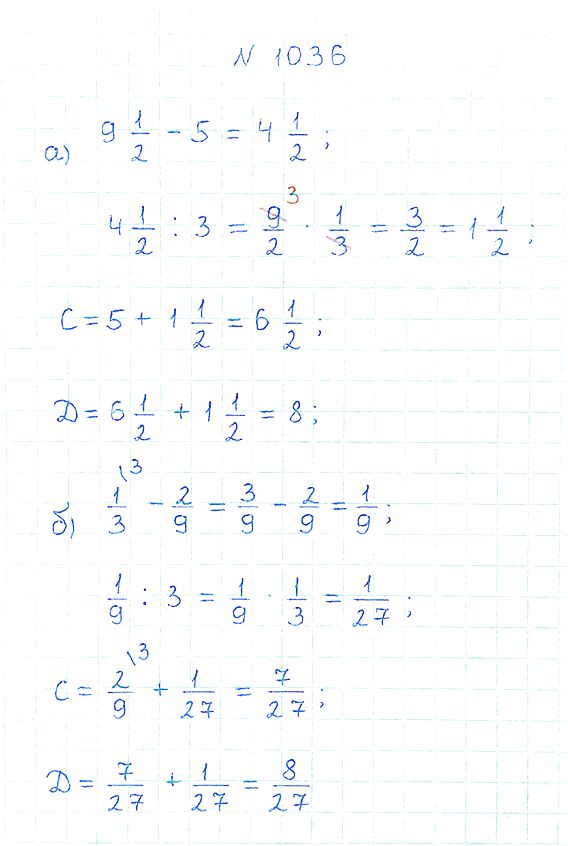 N 1036
а) 9 1/2 - 5 = 4 1/2 ;
4 1/2 : 3 = 9/2 3 · 1/3 = 3/2 = 1 1/2 ;
C = 5 + 1 1/2 = 6 1/2 ;
Д = 6 1/2 + 1 1/2 = 8 ;
б) 1/3 \3 - 2/9 = 3/9 - 2/9 = 1/9 ;
1/9 : 3 = 1/9 · 1/3 = 1/27 ;
C = 2/9 \3 + 1/27 = 7/27 ;
Д = 7/27 + 1/27 = 8/27